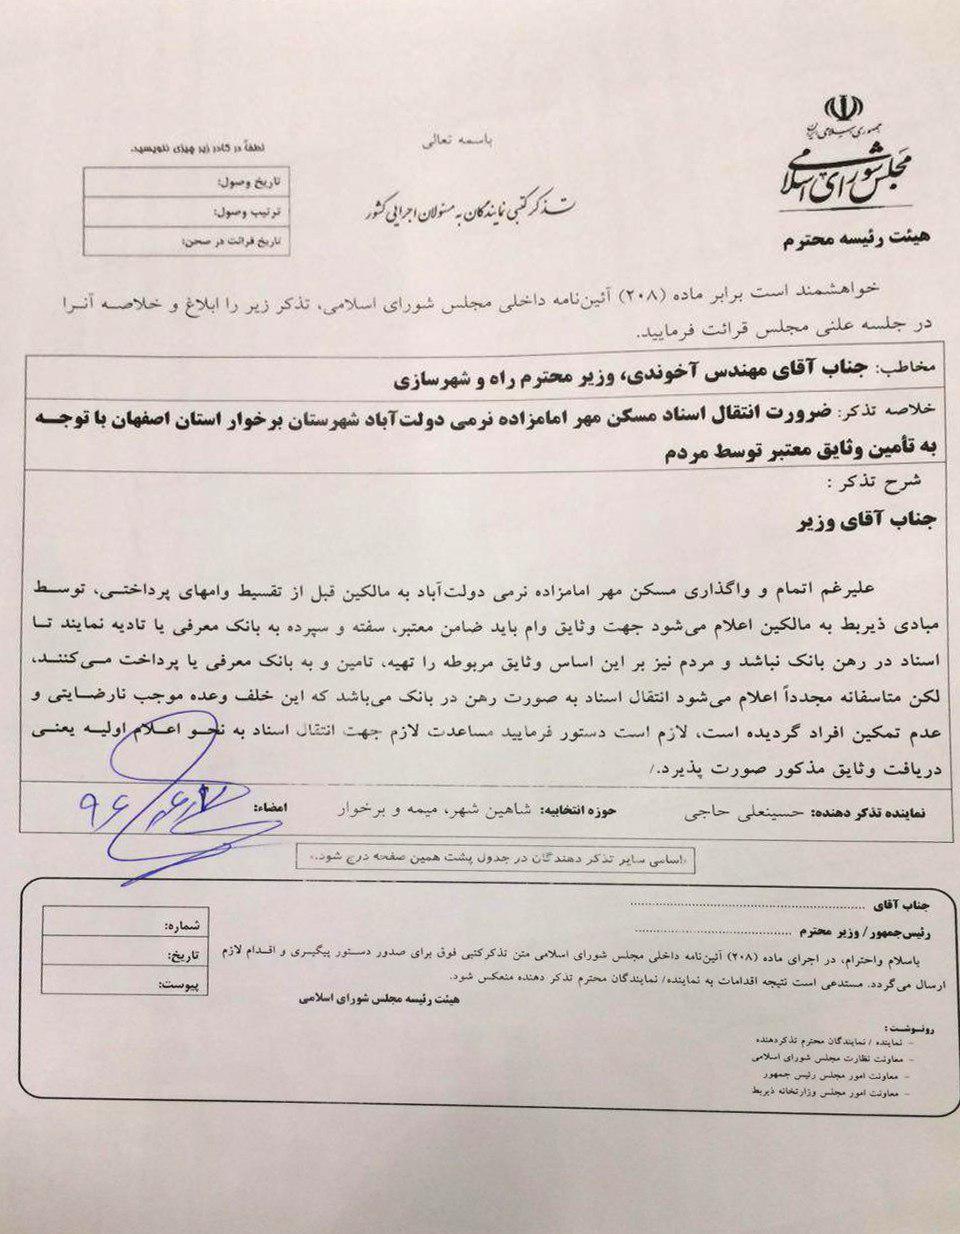 جمهوری اسلامی ایران
مجلس شورای اسلامی
هیئت رئیسه محترم
باسمه تعالی
تذکر کتبی نمایندگان به مسئولان اجرایی کشور
لطفاً در کادر زیر چیزی ننویسید.
تاریخ وصول:
ترتیب وصول:
تاریخ قرائت در صحن:
خواهشمند است برابر ماده (۲۰۸) آئین‌نامه داخلی مجلس شورای اسلامی، تذکر زیر را ابلاغ و خلاصه آنرا
در جلسه علنی مجلس قرائت فرمایید.
مخاطب: جناب آقای مهندس آخوندی، وزیر محترم راه و شهرسازی
خلاصه تذکر: ضرورت انتقال اسناد مسکن مهر امامزاده نرمی دولت‌آباد شهرستان برخوار استان اصفهان با توجه
به تأمین وثایق معتبر توسط مردم
شرح تذکر :
جناب آقای وزیر
علیرغم اتمام و واگذاری مسکن مهر امامزاده نرمی دولت‌آباد به مالکین قبل از تقسیط وامهای پرداختی، توسط
مبادی ذیربط به مالکین اعلام می‌شود جهت وثایق وام باید ضامن معتبر، سفته و سپرده به بانک معرفی یا تادیه نمایند تا
اسناد در رهن بانک نباشد و مردم نیز بر این اساس وثایق مربوطه را تهیه، تامین و به بانک معرفی یا پرداخت می‌کنند،
لکن متاسفانه مجدداً اعلام می‌شود انتقال اسناد به صورت رهن در بانک می‌باشد که این خلف وعده موجب نارضایتی و
عدم تمکین افراد گردیده است، لازم است دستور فرمایید مساعدت لازم جهت انتقال اسناد به نحو اعلام اولیه یعنی
دریافت وثایق مذکور صورت پذیرد./
نماینده تذکر دهنده: حسینعلی حاجی حوزه انتخابیه: شاهین شهر، میمه و برخوار امضاء:
اسامی سایر تذکر دهندگان در جدول پشت همین صفحه درج شود.
جناب آقای ........................................
رئیس‌جمهور/ وزیر محترم ........................................
باسلام واحترام، در اجرای ماده (۲۰۸) آئین‌نامه داخلی مجلس شورای اسلامی متن تذکرکتبی فوق برای صدور دستور پیگیری و اقدام لازم
ارسال می‌گردد. مستدعی است نتیجه اقدامات به نماینده/ نمایندگان محترم تذکر دهنده منعکس شود.
هیئت رئیسه مجلس شورای اسلامی
شماره:
تاریخ:
پیوست:
رونوشت:
- نماینده / نمایندگان محترم تذکردهنده
- معاونت نظارت مجلس شورای اسلامی
- معاونت امور مجلس رئیس جمهور
- معاونت امور مجلس وزارتخانه ذیربط